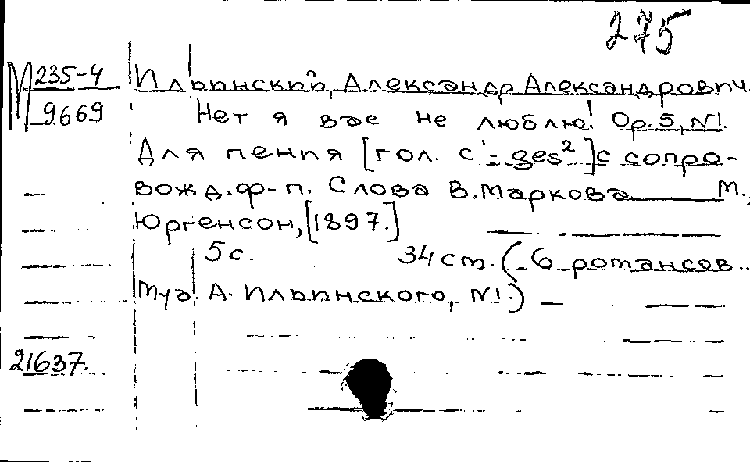 275
М 235-4 Ильинский, Александр Александрович.
9669 Нет я вас не люблю! Op. 5, №1.
Для пения [гол. c'-ges²] с сопро-
вожд. ф-п. Слова В. Маркова М.,
Юргенсон, [1897.]
5 с. 34 ст. (6 романсов..
Муз. А. Ильинского, №1.)
21637.